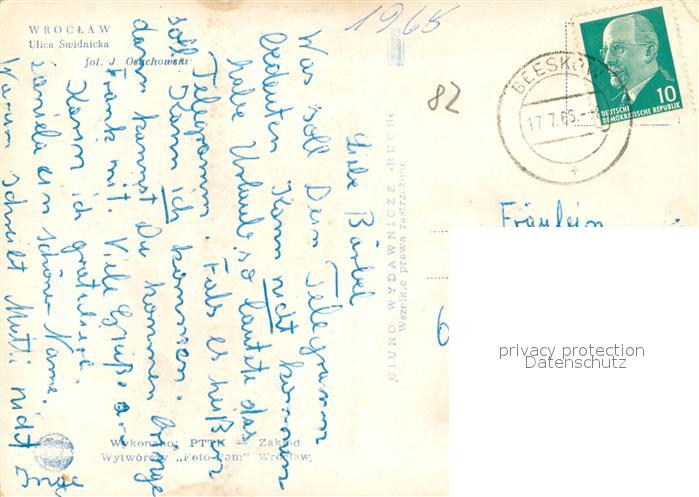 WROCŁAW
Ulica Świdnicka
fot. J.
1965
82
BEESKOW
17.7.65
DEUTSCHE
DEMOKRATISCHE REPUBLIK
10
Fräulein
BIURO WYDAWNICZE „RUCH"
Wszelkie prawa zastrzeżone
Liebe Bärbel
Was soll Dein Telegramm
bedeuten Kann nicht kommen
habe Urlaub, so lautete das
Telegramm. Falls es heißen
soll Kann ich kommen,
dann kannst Du kommen bringe
Frank mit. Viele Grüße an
Karin ich gratuliere.
ein schöner Name.
Warum schreibt Mutti nicht
Wykonano: PTTK — Zakład
Wytwórczy „Foto-Pam" Wrocław
privacy protection
Datenschutz